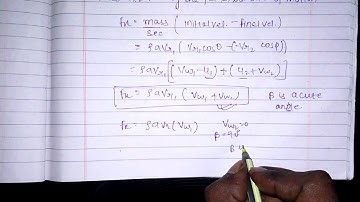 Fx = mass/sec (initial vel. - final vel.)
= ρaVr₁ (Vr₁cosθ - (-Vr₂ cosϕ)
= ρaVr₁ [(Vw₁ - u₁) + (u₂ + Vw₂)]
Fx = ρaVr₁ (Vw₁ + Vw₂) β is acute angle
Fx = ρaVr₁ (Vw₁) Vw₂=0
β = 90
β is